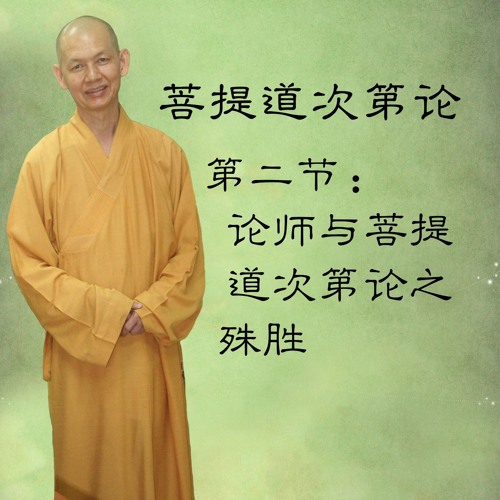 菩提道次第论
第二节：
论师与菩提
道次第论之
殊胜